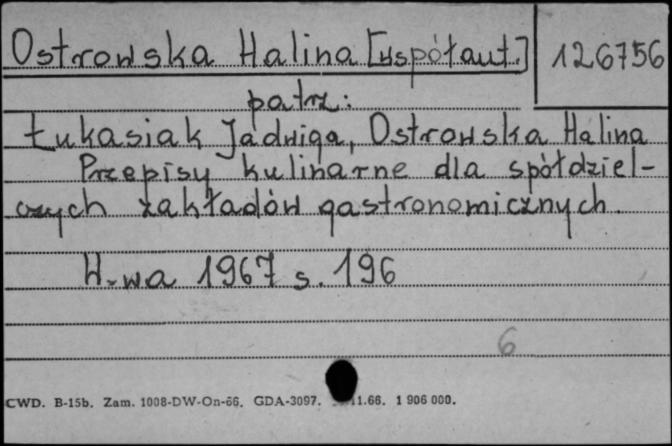 Ostrowska Halina [współaut.]
126756
patrz:
Łukasiak Jadwiga, Ostrowska Halina
Przepisy kulinarne dla spółdziel-
czych zakładów gastronomicznych.
W-wa 1967 s. 196
6
CWD. B-15b. Zam. 1008-DW-On-66. GDA-3097. 11.66. 1 906 000.